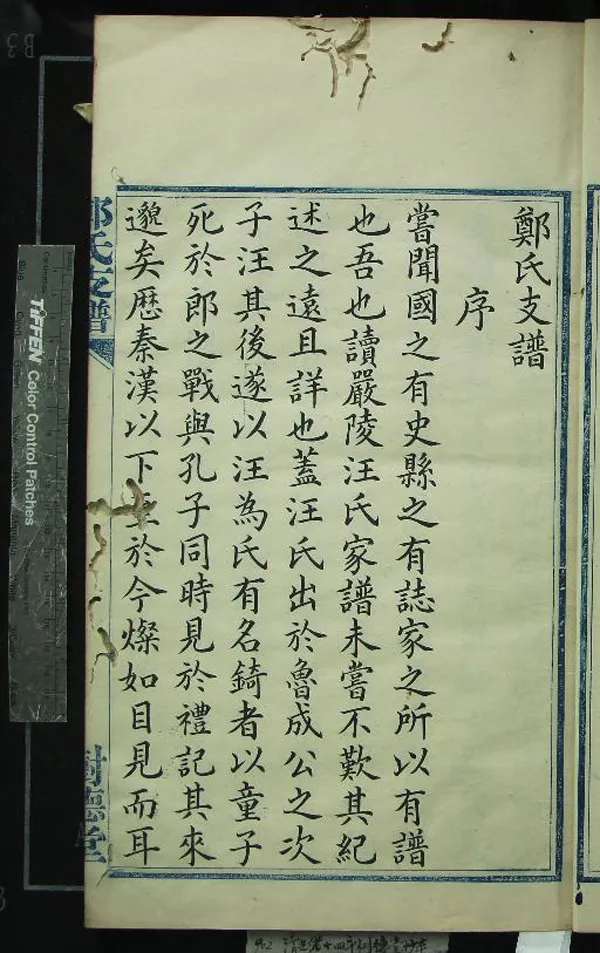 鄭氏支譜
序
嘗聞國之有史縣之有誌家之所以有譜
也吾也讀嚴陵汪氏家譜未嘗不歎其紀
述之遠且詳也蓋汪氏出於魯成公之次
子汪其後遂以汪為氏有名錡者以童子
死於郎之戰與孔子同時見於禮記其來
邈矣歷秦漢以下至於今燦如目見而耳
鄭氏支譜
德堂
TIFFEN Color Control Patches
B3